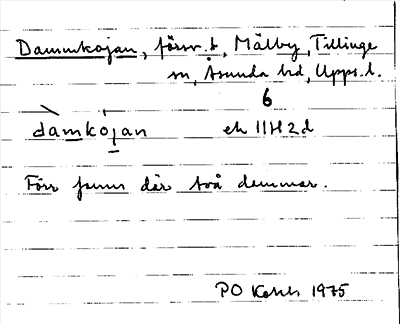 Dammkojan, försv. t, Mälby, Tillinge
sn, Åsunda hd, Upps. l.
6
dàmkójan ek 11H2d
Förr fanns där två dammar.
PO 1975